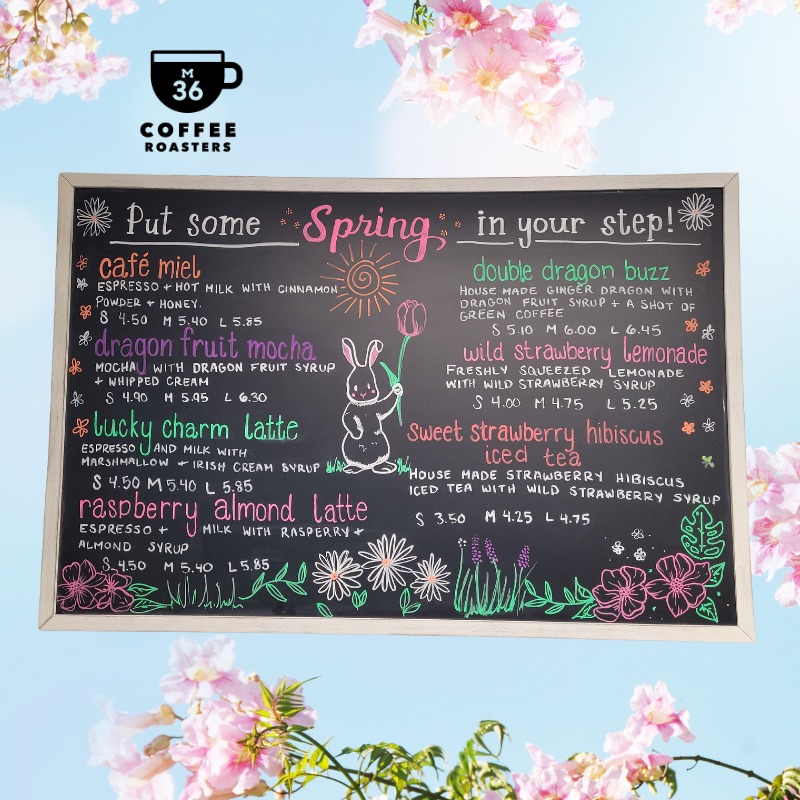 M
36
COFFEE
ROASTERS
Put some Spring in your step!
café miel
ESPRESSO + HOT MILK WITH CINNAMON
POWDER + HONEY.
S 4.50 M 5.40 L 5.85
dragon fruit mocha
MOCHA WITH DRAGON FRUIT SYRUP
+ WHIPPED CREAM
S 4.90 M 5.95 L 6.30
lucky charm latte
ESPRESSO AND MILK WITH
MARSHMALLOW + IRISH CREAM SYRUP
S 4.50 M 5.40 L 5.85
raspberry almond latte
ESPRESSO + MILK WITH RASPERRY +
ALMOND SYRUP
S 4.50 M 5.40 L 5.85
double dragon buzz
HOUSE MADE GINGER DRAGON WITH
DRAGON FRUIT SYRUP + A SHOT OF
GREEN COFFEE
S 5.10 M 6.00 L 6.45
wild strawberry lemonade
FRESHLY SQUEEZED LEMONADE
WITH WILD STRAWBERRY SYRUP
S 4.00 M 4.75 L 5.25
sweet strawberry hibiscus
iced tea
HOUSE MADE STRAWBERRY HIBISCUS
ICED TEA WITH WILD STRAWBERRY SYRUP
S 3.50 M 4.25 L 4.75